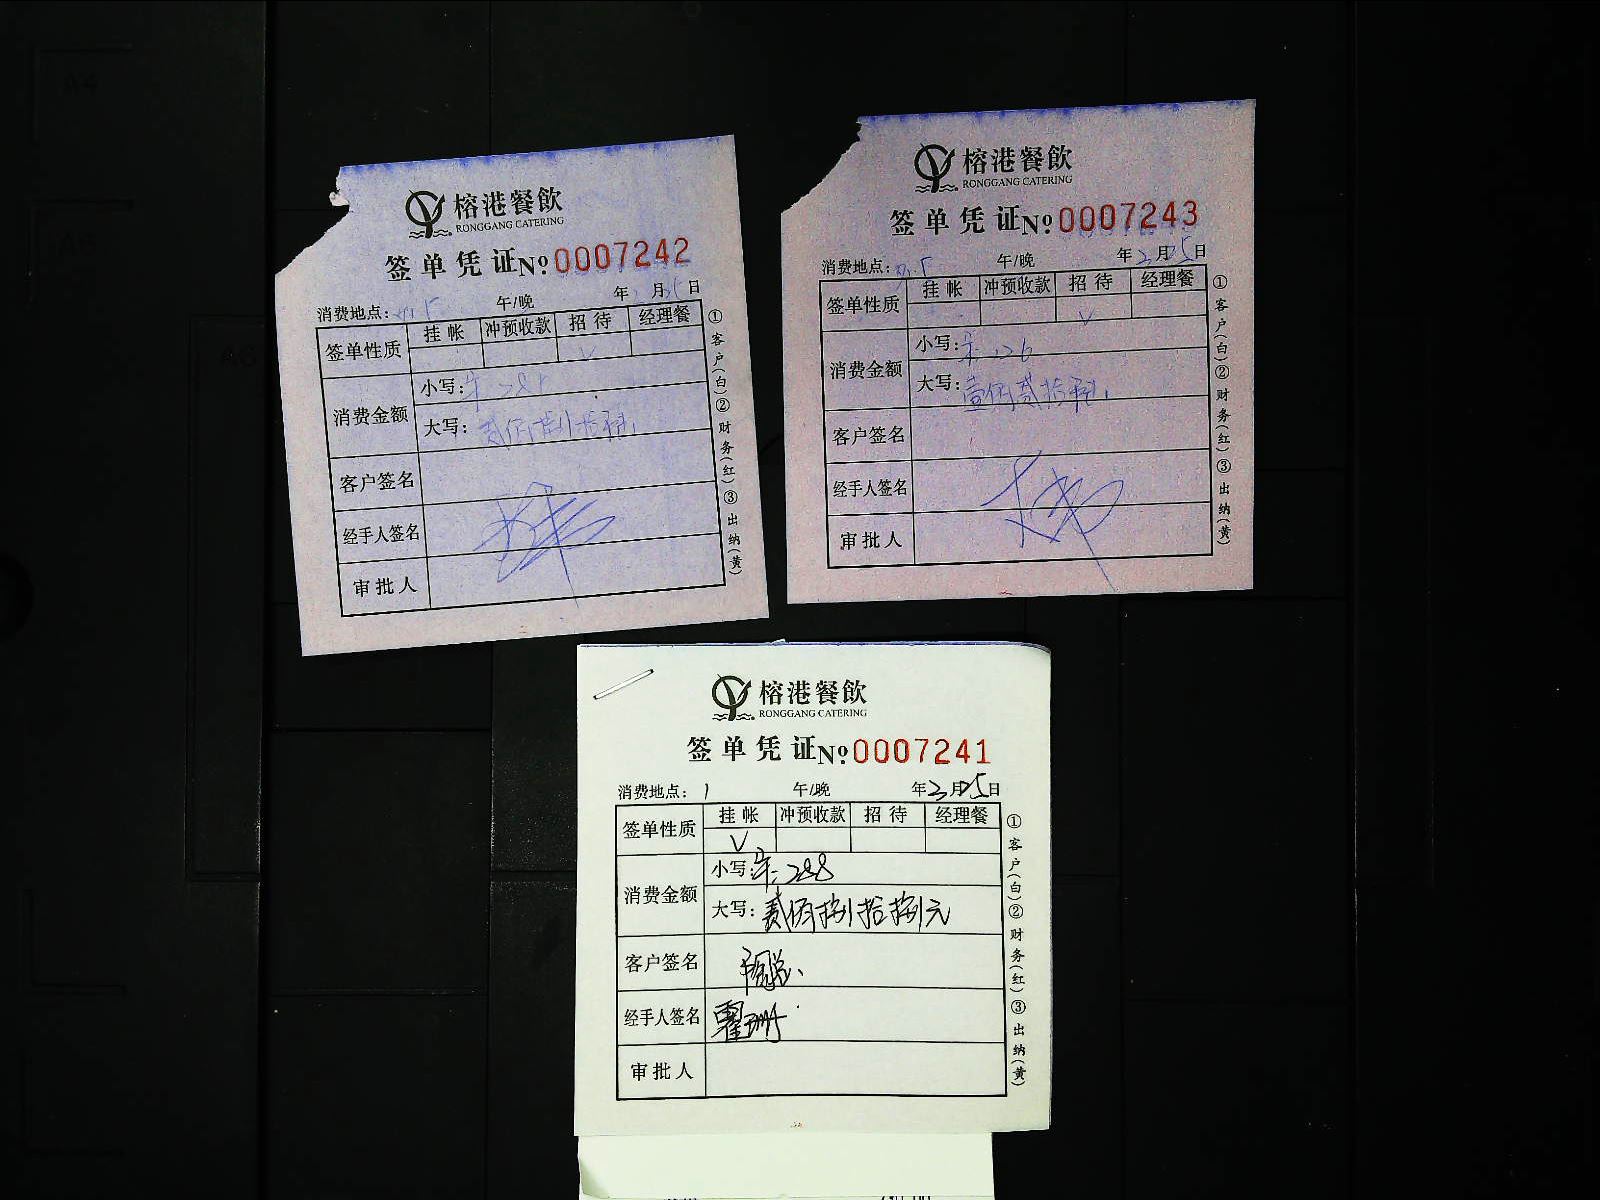 榕港餐飲
RONGGANG CATERING
签单凭证№0007242
消费地点: 午/晚 年 月 日
签单性质 挂帐 冲预收款 招待 经理餐
V
消费金额 小写:
大写:
客户签名
经手人签名
审批人
①客户(白)②财务(红)③出纳(黄)
榕港餐飲
RONGGANG CATERING
签单凭证№0007243
消费地点: 午/晚 年 月 日
签单性质 挂帐 冲预收款 招待 经理餐
V
消费金额 小写:
大写:
客户签名
经手人签名
审批人
①客户(白)②财务(红)③出纳(黄)
榕港餐飲
RONGGANG CATERING
签单凭证№0007241
消费地点: 1 午/晚 年 月 日
签单性质 挂帐 冲预收款 招待 经理餐
V
消费金额 小写: 288
大写: 贰佰捌拾捌元
客户签名
经手人签名
审批人
①客户(白)②财务(红)③出纳(黄)